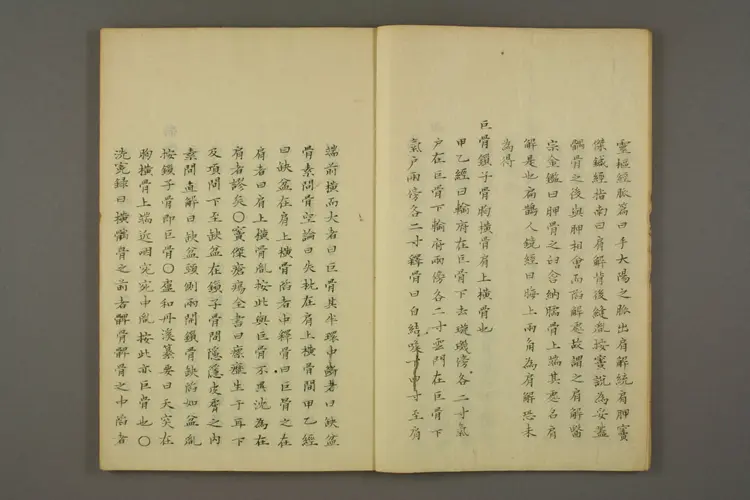 靈樞經脉篇曰手太陽之脉出肩解繞肩胛竇
傑鍼經指南曰肩解背後縫亂按竇說為妥蓋
髃骨之後與胛相會而陷解處故謂之肩解醫
宗金鑑曰胛骨之臼含納臑骨上端其處名肩
解是也扁鵲人鏡經曰海上兩角為肩解恐未
為得
巨骨鎖子骨胸橫骨肩上橫骨也
甲乙經曰輸府在巨骨下去璇璣傍各二寸氣
戶在巨骨下輸府兩傍各二寸雲門在巨骨下
氣戶兩傍各二寸釋骨曰自結喉下四寸至肩
端前橫而大者曰巨骨其半環中斷者曰缺盆
骨素問骨空論曰失枕在肩上橫骨間甲乙經
曰缺盆在肩上橫骨陷者中釋骨曰巨骨之在
肩者曰肩上橫骨亂按此與巨骨不異沈為在
肩者謬矣〇竇傑瘡瘍全書曰瘰癧生于耳下
及項間下至缺盆在鎖子骨間隱隱皮膚之內
素問直解曰缺盆頸側兩間鎖骨缺陷如盆亂
按鎖子骨即巨骨〇盧和丹溪纂要曰天突在
胸橫骨上端近咽宛宛中亂按此亦巨骨也〇
洗冤錄曰橫髃骨之前者髀骨髀骨之中陷者